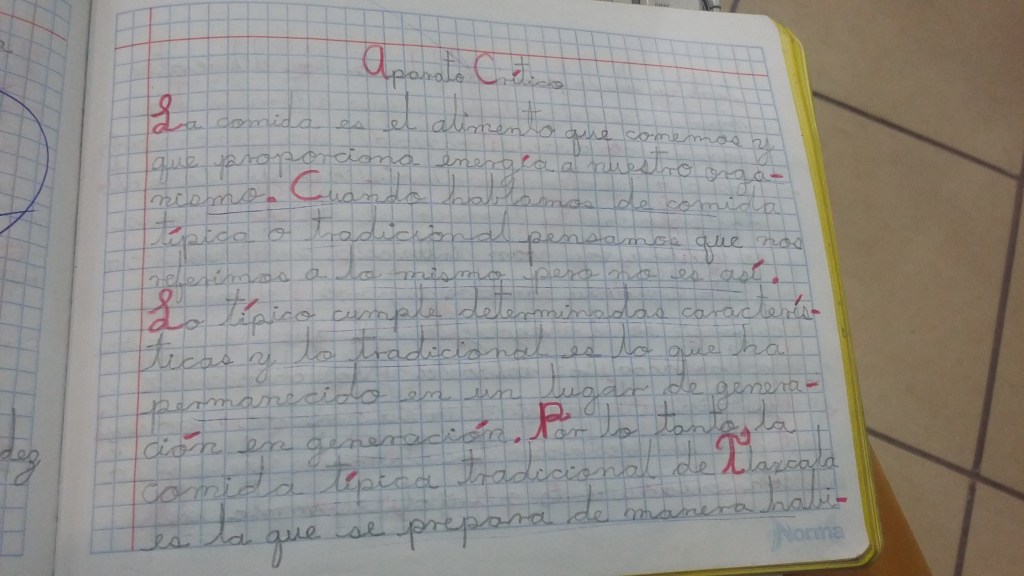 Aparato Crítico
La comida es el alimento que comemos y
que proporciona energía a nuestro orga-
nismo. Cuando hablamos de comida
típica o tradicional pensamos que nos
referimos a lo mismo pero no es así.
Lo típico cumple determinadas caracterís-
ticas y lo tradicional es lo que ha
permanecido en un lugar de genera-
ción en generación. Por lo tanto la
comida típica tradicional de Tlaxcala
es la que se prepara de manera habi-
Norma
dez